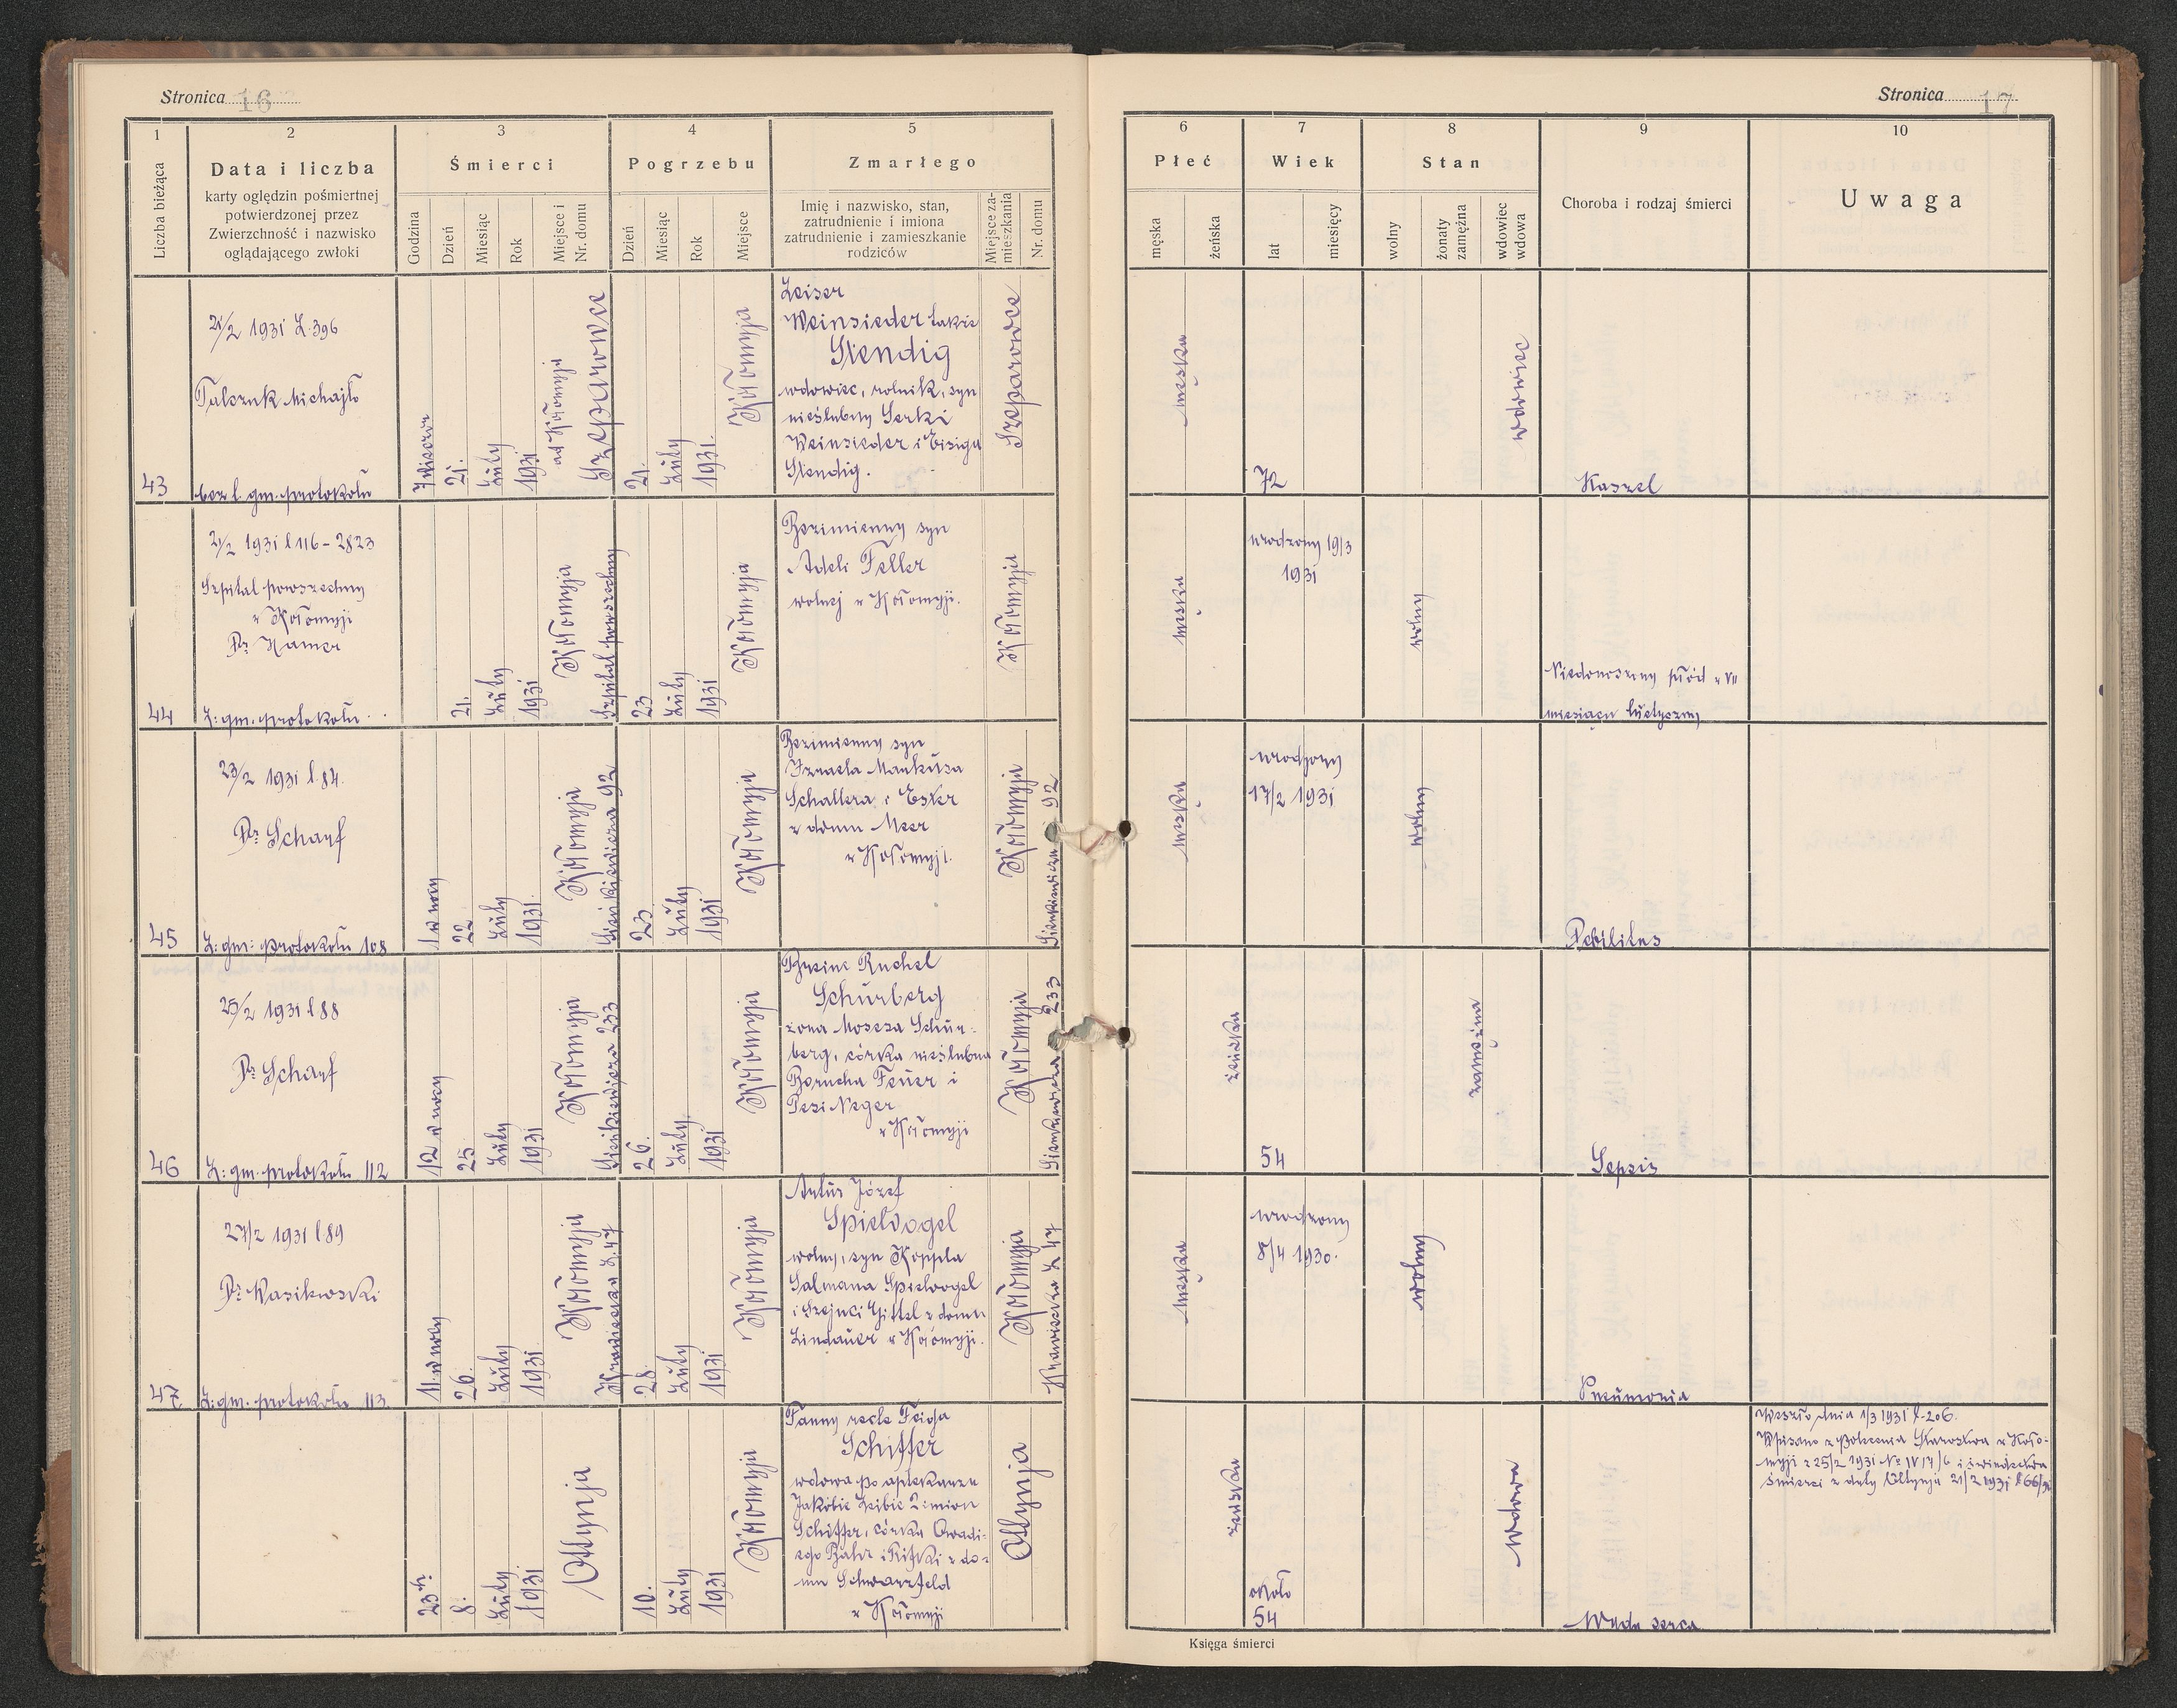 Stronica 16
1
2
3
4
5
Liczba bieżąca
Data i liczba
karty oględzin pośmiertnej
potwierdzonej przez
Zwierzchność i nazwisko
oglądającego zwłoki
Śmierci
Godzina
Dzień
Miesiąc
Rok
Miejsce i
Nr. domu
Pogrzebu
Dzień
Miesiąc
Rok
Miejsce
Zmarłego
Imię i nazwisko, stan,
zatrudnienie i imiona
zatrudnienie i zamieszkanie
rodziców
Miejsce za-
mieszkania
Nr. domu
43
21/2 1931 L. 396
Michajło
bez l. gm. protokołu
7 wieczór
21.
Luty
1931
ad Kołomyji
Szeparowce
21.
Luty
1931.
Kołomyja
Leiser
Weinsieder także
Stendig
wdowiec, rolnik, syn
nieślubny Serki
Weinsieder i Eisiga
Stendig.
Szeparowce
44
21/2 1931 l 116 - 2823
Szpital powszechny
w Kołomyji
Dr. Hamer
L: gm. protokołu
21.
Luty
1931
Kołomyja
Szpital powszechny
23
Luty
1931
Kołomyja
Bezimienny syn
Adeli Feller
wolnej w Kołomyji.
Kołomyja
45
23/2 1931 l. 84.
Dr. Scharf
L: gm: protokołu 108
1 w nocy
22
Luty
1931.
Kołomyja
Sienkiewicza 92
23
Luty
1931
Kołomyja
Bezimienny syn
Izraela Markusa
Schallera i Ester
z domu Meer
w Kołomyji.
Kołomyja
Sienkiewicza 92
46
25/2 1931 l 88
Dr. Scharf
L: gm. protokołu 112
12 w nocy
25
Luty
1931
Kołomyja
Sienkiewicza 233
26.
Luty.
1931
Kołomyja
Ruchel
Schürberg
żona Moszsa Schür-
berg, córka nieślubna
Borucha Feuer i
Pesi Neger
w Kołomyji
Kołomyja
Sienkiewicza 233
47
27/2 1931 l 89
Dr. Wasikowski
L: gm. protokołu 113.
11. w nocy
26.
Luty
1931
Kołomyja
Krawiecka L: 47
28.
Luty
1931
Kołomyja
Artur Józef
Spielvogel
wolny, syn Koppla
Salmana Spielvogel
i Szejnci Gittel z domu
Lindauer w Kołomyji.
Kołomyja
Krawiecka L 47
23 h.
8.
Luty
1931
Ottynja
10.
Luty
1931
Kołomyja
Fanny recte Feiga
Schiffer
wdowa po aptekarzu
Jakóbie Leibie 2 imion
Schiffer, córka Owadi-
ego Bahr i Rifki z do-
mu Schwarzfeld
w Kołomyji
Ottynja
Stronica 17
6
7
8
9
10
Płeć
męska
żeńska
Wiek
lat
miesięcy
Stan
wolny
żonaty
zamężna
wdowiec
wdowa
Choroba i rodzaj śmierci
Uwaga
męska
72
wdowiec
Kaszel
męska
urodzony 19/3
1931
wolny
Niedonoszony płód w VII
miesiącu luetyczny
męska
urodzony
17/2 1931
wolny
Debilitas
żeńska
54
zamężna
Sepsis
męska
urodzony
8/4 1930.
wolny
Pneumonia
żeńska
około
54
wdowa
Wada serca
Weszło dnia 1/3 1931 l. 206.
Wpisano z polecenia Starostwa w Koło-
myji z 25/2 1931 No IV 17/6 i świadectwa
śmierci z daty Ottynja 21/2 1931 l 66/31
Księga śmierci